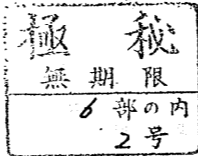 極秘
無期限
6部の内
2号